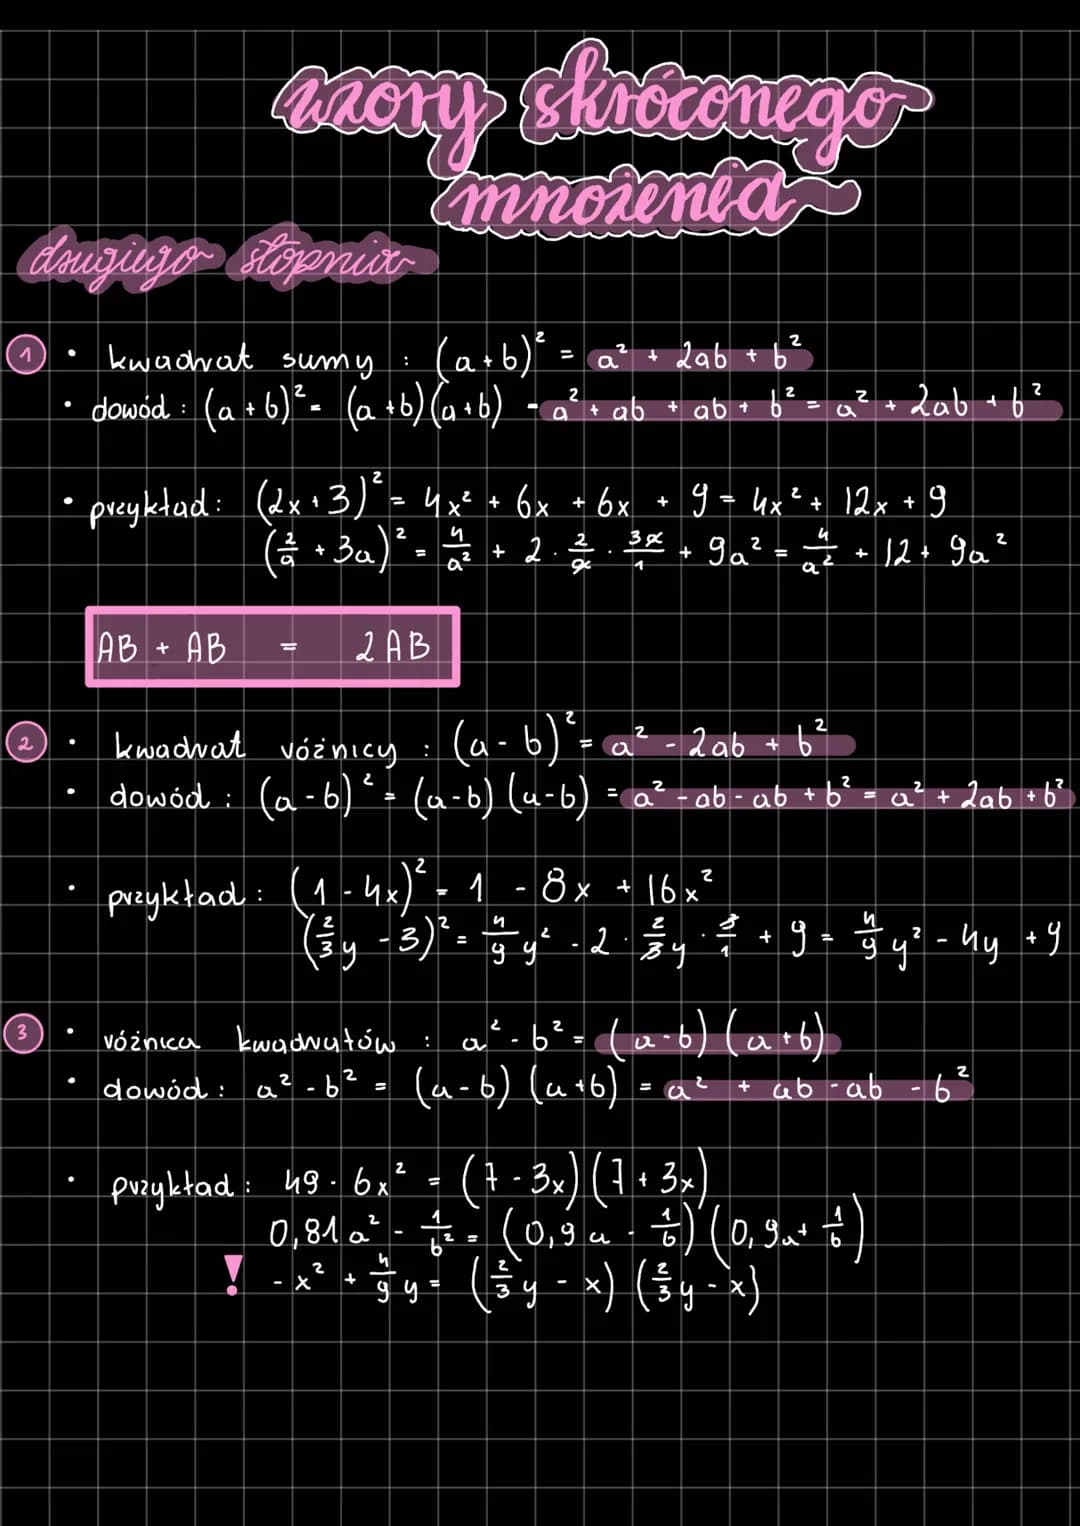 wzory skróconego
mnożenia
drugiego stopnia
1 • kwadrat sumy : (a+b)² = a² + 2ab + b²
• dowód : (a+b)² = (a+b)(a+b) = a² + ab + ab + b² = a² + 2ab + b²
• przykład : (2x+3)² = 4x² + 6x + 6x + 9 = 4x² + 12x + 9
(2/a + 3a)² = 4/a² + 2 · 2/a · 3a/1 + 9a² = 4/a² + 12 + 9a²
AB + AB = 2AB
2 • kwadrat różnicy : (a-b)² = a² - 2ab + b²
• dowód : (a-b)² = (a-b)(a-b) = a² - ab - ab + b² = a² + 2ab + b²
• przykład : (1-4x)² = 1 - 8x + 16x²
(2/3 y - 3)² = 4/9 y² - 2 · 2/3 y · 3/1 + 9 = 4/9 y² - 4y + 9
3 • różnica kwadratów : a² - b² = (a-b)(a+b)
• dowód : a² - b² = (a-b)(a+b) = a² + ab - ab - b²
• przykład : 49 - 6x² = (7-3x)(7+3x)
0,81a² - 1/b² = (0,9a - 1/b)(0,9a + 1/b)
! -x² + 4/9 y = (2/3 y - x)(2/3 y - x)